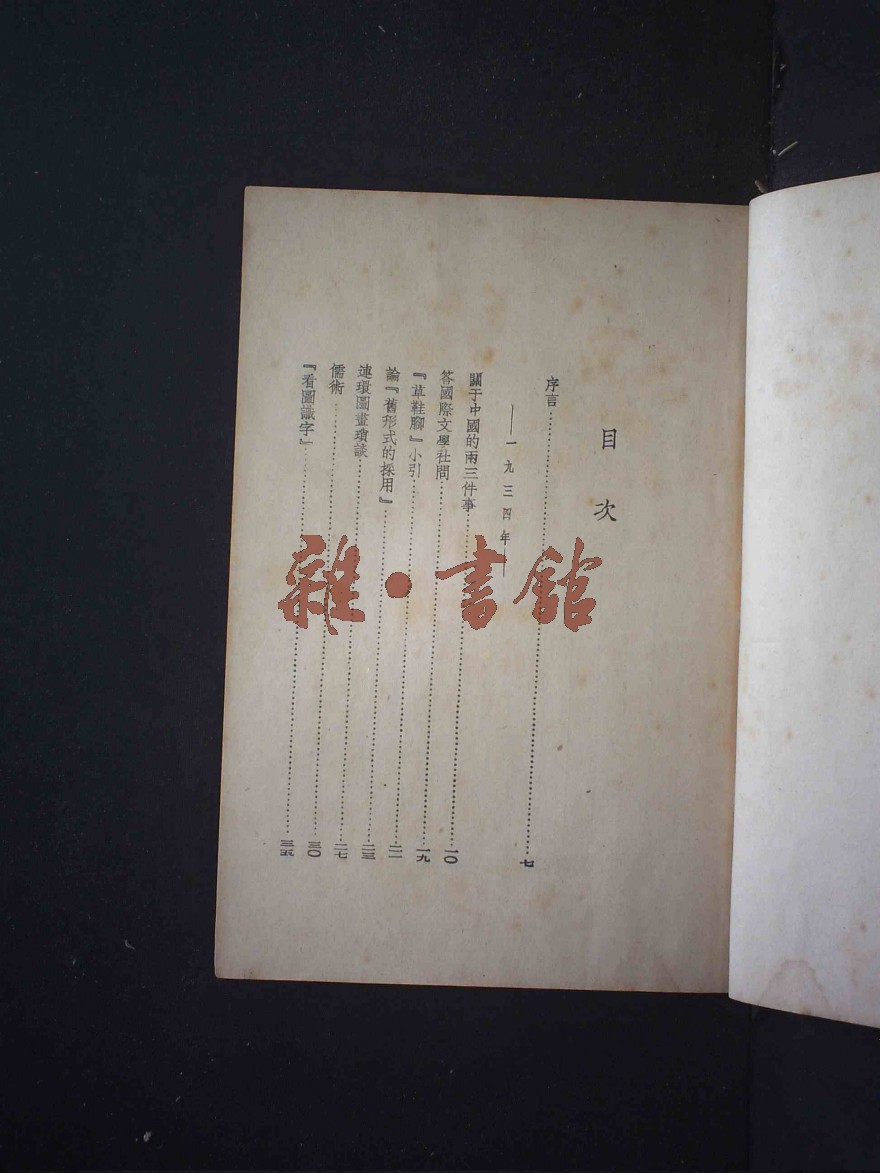 目次
序言……七
——一九三四年——
關于中國的兩三件事……一〇
答國際文學社問……一九
『草鞋腳』小引……二一
論『舊形式的採用』……二三
連環圖畫瑣談……二七
儒術……三〇
『看圖識字』……三五
雜·書館